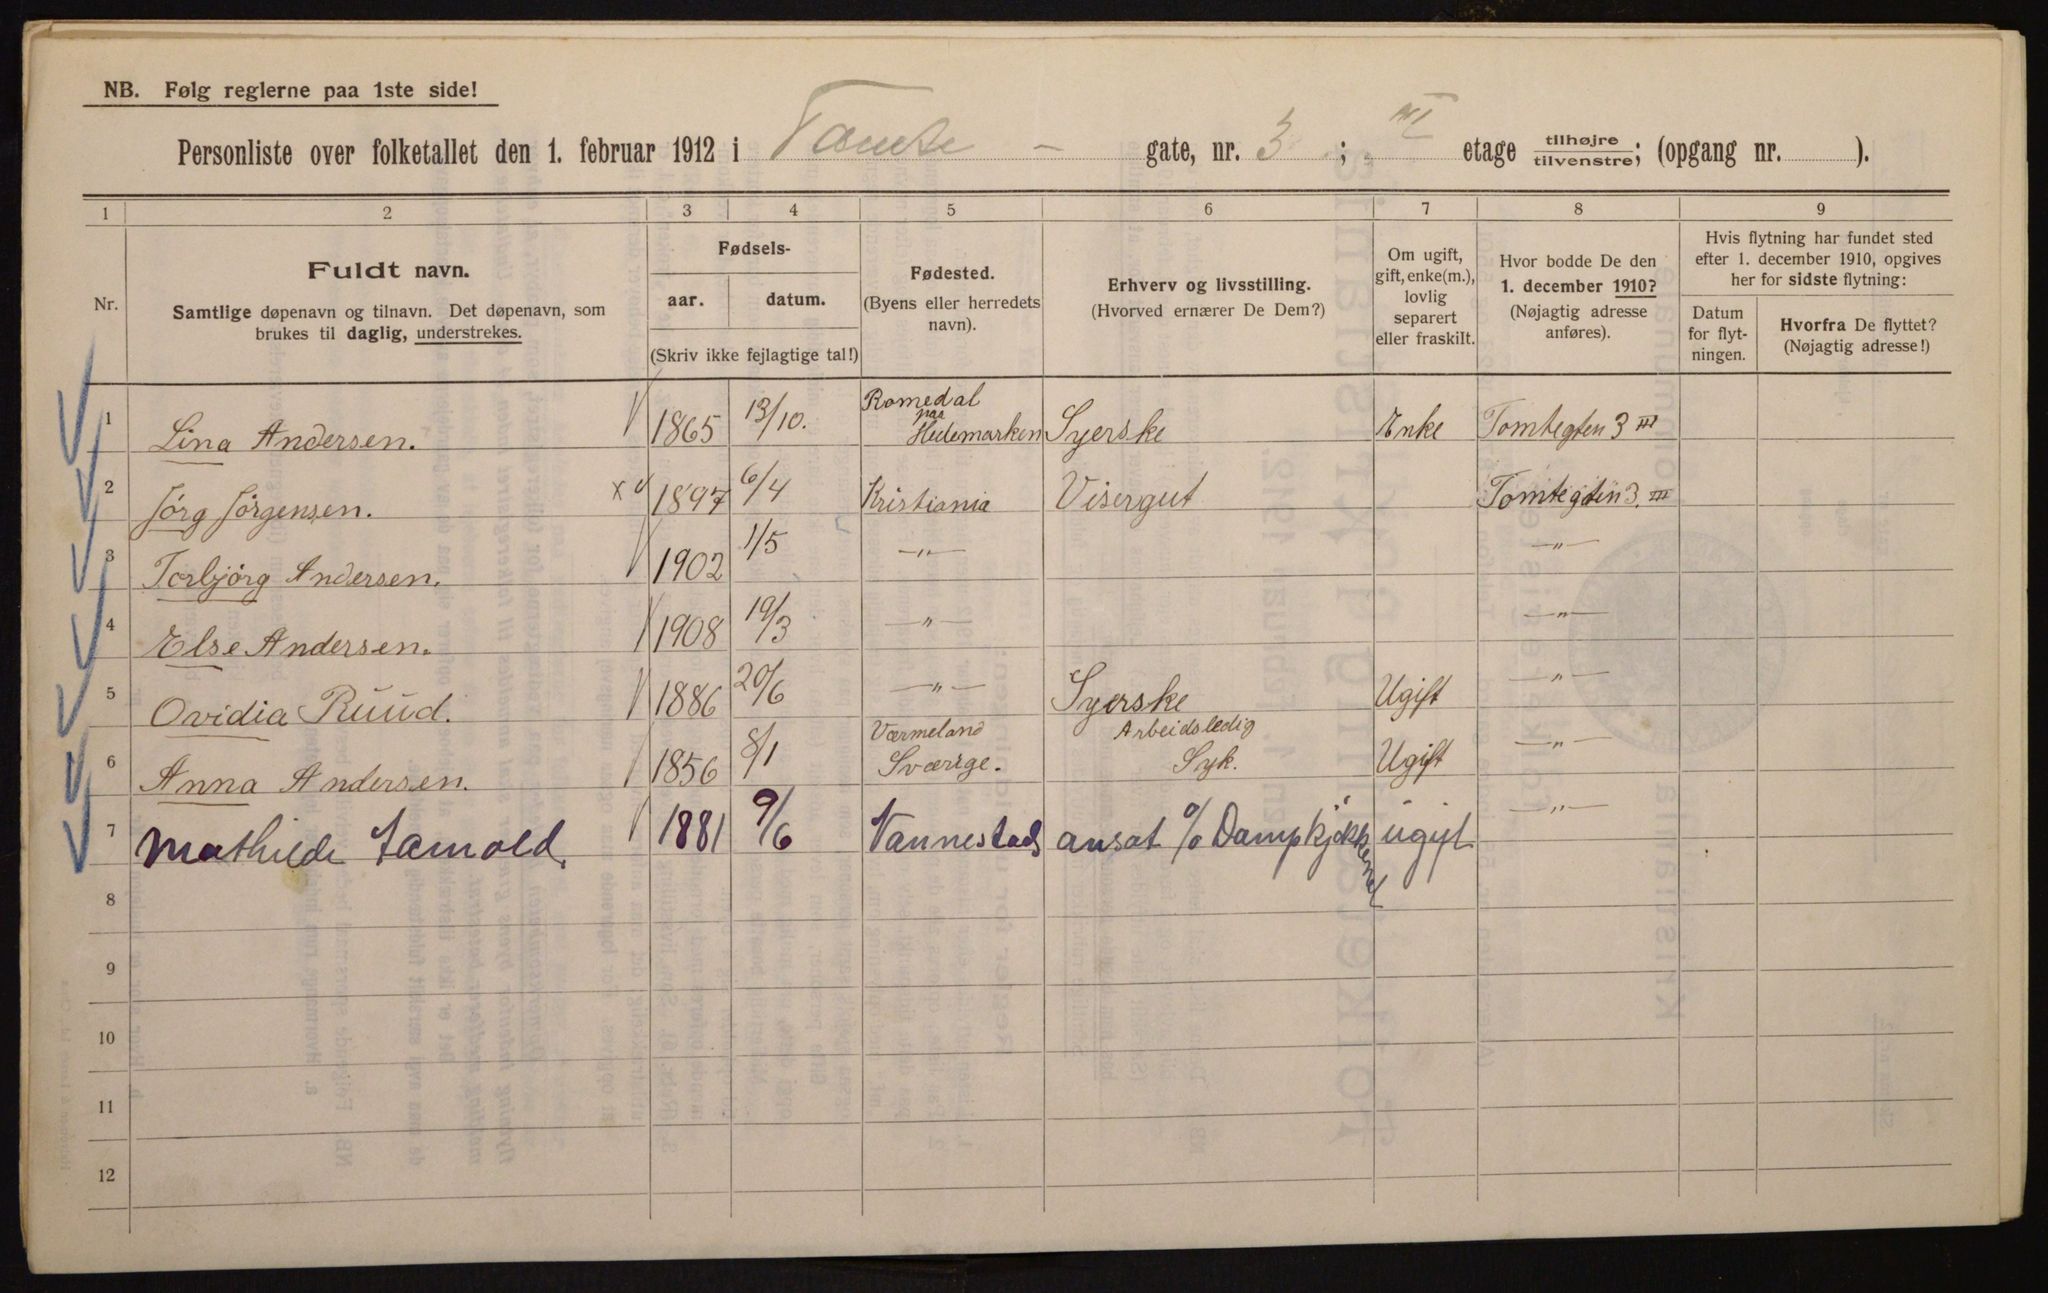 NB. Følg reglerne paa 1ste side!
Personliste over folketallet den 1. februar 1912 i Tomte - gate, nr. 3 ; III etage tilhøjre/tilvenstre; (opgang nr. ).
1 2 3 4 5 6 7 8 9
Nr.
Fuldt navn.
Samtlige døpenavn og tilnavn. Det døpenavn, som
brukes til daglig, understrekes.
Fødsels-
aar. datum.
(Skriv ikke fejlagtige tal!)
Fødested.
(Byens eller herredets
navn).
Erhverv og livsstilling.
(Hvorved ernærer De Dem?)
Om ugift,
gift, enke(m.),
lovlig
separert
eller fraskilt.
Hvor bodde De den
1. december 1910?
(Nøjagtig adresse
anføres).
Hvis flytning har fundet sted
efter 1. december 1910, opgives
her for sidste flytning:
Datum
for flyt-
ningen.
Hvorfra De flyttet?
(Nøjagtig adresse!)
1 Lina Andersen. 1865 13/10. Romedal paa Hedemarken Syerske Enke Tomtegten 3 III
2 Jörg Jörgensen. x 1897 6/4 Kristiania Visergut Tomtegten 3. III
3 Torbjörg Andersen. 1902 1/5 —"— —"—
4 Else Andersen. 1908 19/3 —"— —"—
5 Ovidia Ruud. 1886 20/6 —"— Syerske Ugift —"—
6 Anna Andersen. 1856 8/1 Værmeland Sværrge. Arbeidsledig Syk. Ugift —"—
7 Mathilde 1881 9/6 Nannestad ansat o/ Dampkjøkkenet ugift —"—
8
9
10
11
12